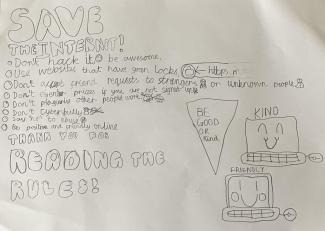 SAVE
THE INTERNIT!
Don't hack it be awesome.
Use website that have green locks https.
Don't accept friend requests to strangers or unknown people
Don't prizes if you are not signed up
Don't other people work
Don't cyberbully
Say "no" to abuse
Be positive and friendly online
THANK YOU FOR
READING THE
RULES!
BE
GOOD
OR
Kind
KIND
FRIENDLY